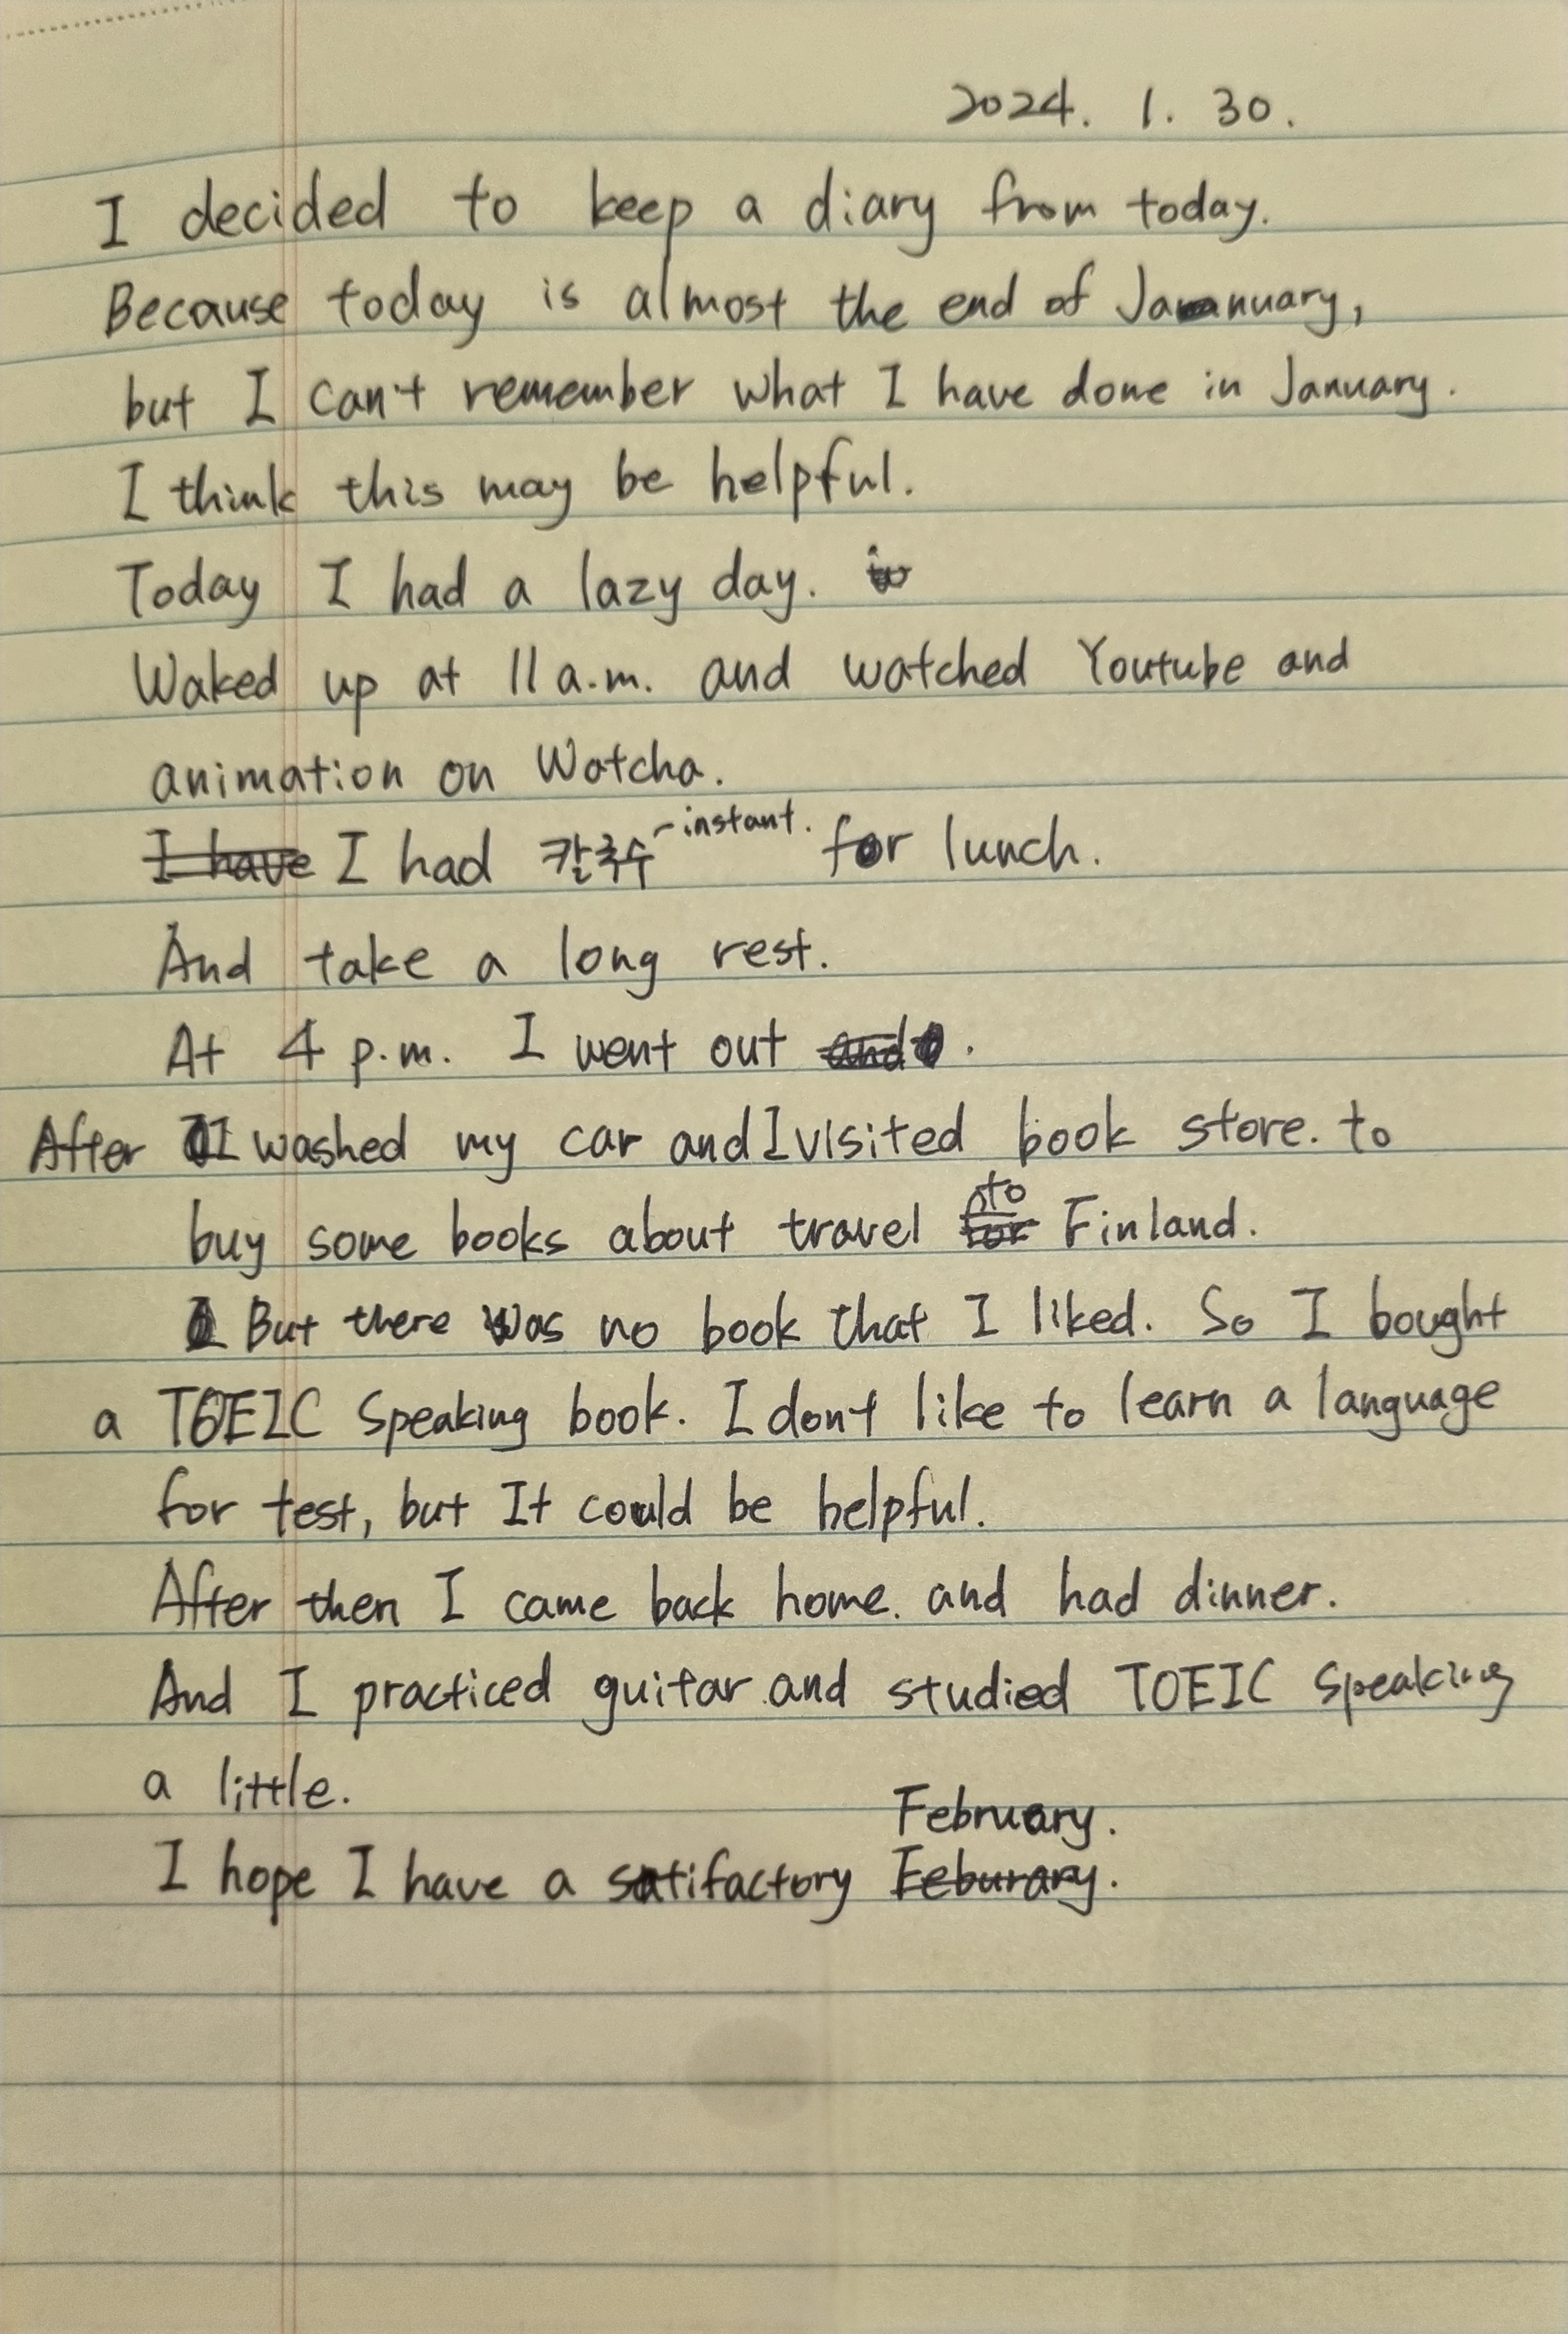 2024. 1. 30.
I decided to keep a diary from today.
Because today is almost the end of January,
but I can't remember what I have done in January.
I think this may be helpful.
Today I had a lazy day.
Waked up at 11 a.m. and watched Youtube and
animation on Watcha.
I have I had 칼국수 -instant. for lunch.
And take a long rest.
At 4 p.m. I went out and.
After I washed my car and I visited book store. to
buy some books about travel for to Finland.
But there was no book that I liked. So I bought
a TOEIC Speaking book. I don't like to learn a language
for test, but It could be helpful.
After then I came back home. and had dinner.
And I practiced guitar and studied TOEIC Speaking
a little.
February.
I hope I have a satifactory Feburary.